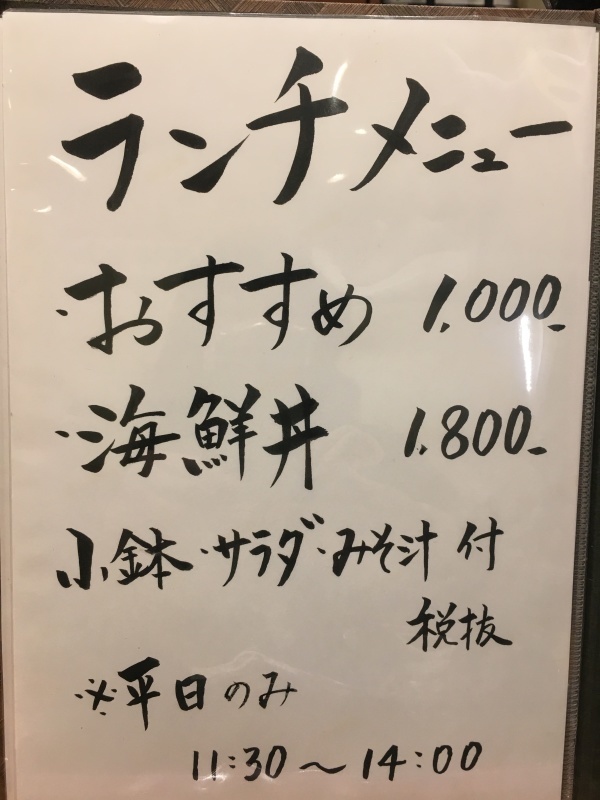 ランチメニュー
・おすすめ 1,000-
・海鮮丼 1,800-
小鉢・サラダ・みそ汁 付
税抜
※平日のみ
11:30〜14:00